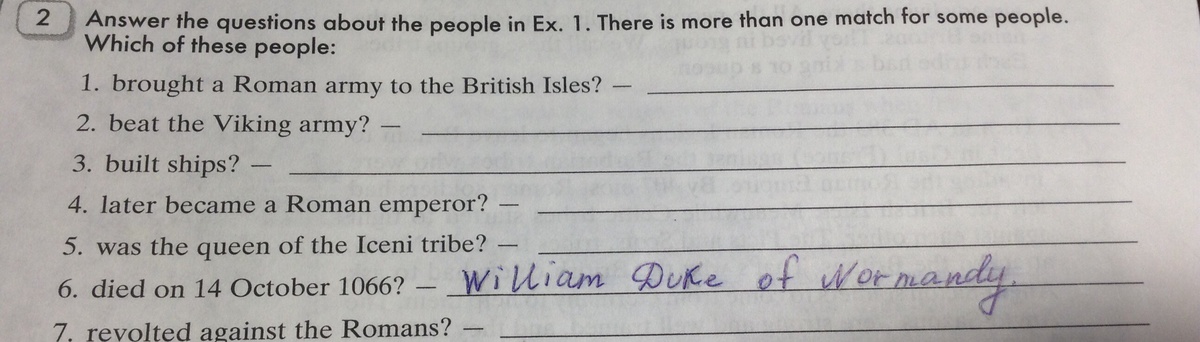 2 Answer the questions about the people in Ex. 1. There is more than one match for some people.
Which of these people:
1. brought a Roman army to the British Isles? —
2. beat the Viking army? —
3. built ships? —
4. later became a Roman emperor? —
5. was the queen of the Iceni tribe? —
6. died on 14 October 1066? — William Duke of Normandy.
7. revolted against the Romans? —